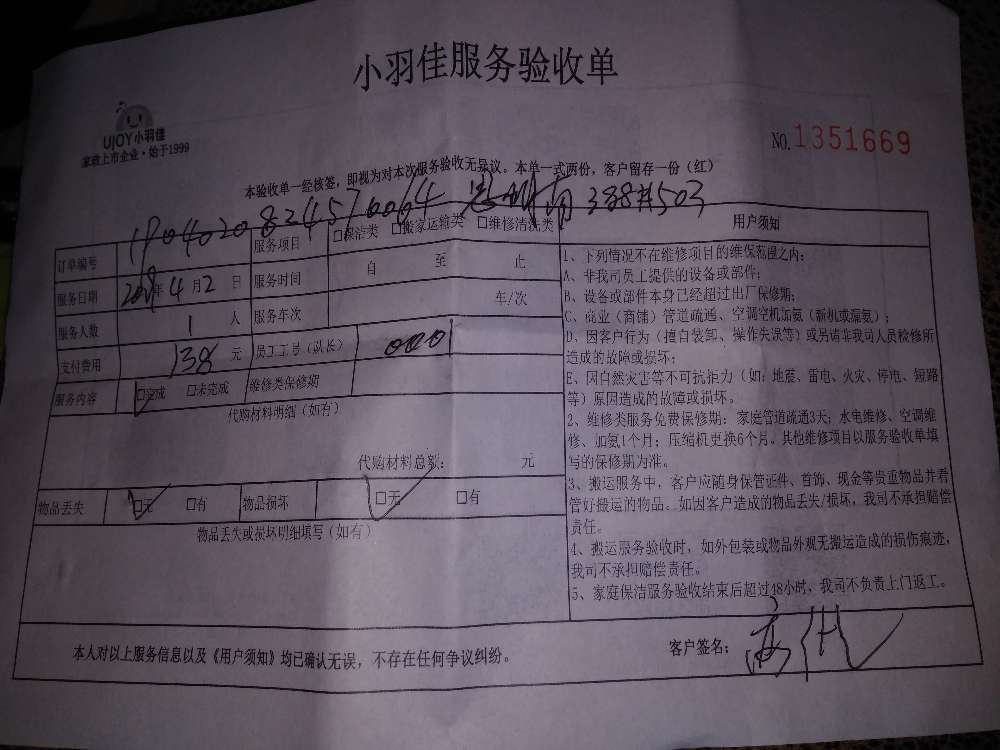 小羽佳服务验收单
UJOY小羽佳
家政上市企业·始于1999
NO. 1351669
本验收单一经核签，即视为对本次服务验收无异议。本单一式两份，客户留存一份（红）
388#503
订单编号
服务项目 □保洁类 □搬家运输类 □维修清洗类
服务日期 年4月2日 服务时间 自 至 止
服务人数 1 人 服务车次 车/次
支付费用 138 元 员工工号（队长） 0001
服务内容 □完成 □未完成 维修类保修期
代购材料明细（如有）
代购材料总额： 元
物品丢失 □无 □有 物品损坏 □无 □有
物品丢失或损坏明细填写（如有）
用户须知
1、下列情况不在维修项目的维保范围之内：
A、非我司员工提供的设备或部件；
B、设备或部件本身已经超过出厂保修期；
C、商业（商铺）管道疏通、空调空机加氨（新机或漏氨）；
D、因客户行为（擅自装卸、操作失误等）或另请非我司人员检修所
造成的故障或损坏；
E、因自然灾害等不可抗拒力（如：地震、雷电、火灾、停电、短路
等）原因造成的故障或损坏。
2、维修类服务免费保修期：家庭管道疏通3天；水电维修、空调维
修、加氨1个月；压缩机更换6个月。其他维修项目以服务验收单填
写的保修期为准。
3、搬运服务中，客户应随身保管证件、首饰、现金等贵重物品并看
管好搬运的物品。如因客户造成的物品丢失/损坏，我司不承担赔偿
责任。
4、搬运服务验收时，如外包装或物品外观无搬运造成的损伤痕迹，
我司不承担赔偿责任。
5、家庭保洁服务验收结束后超过48小时，我司不负责上门返工。
本人对以上服务信息以及《用户须知》均已确认无误，不存在任何争议纠纷。
客户签名：